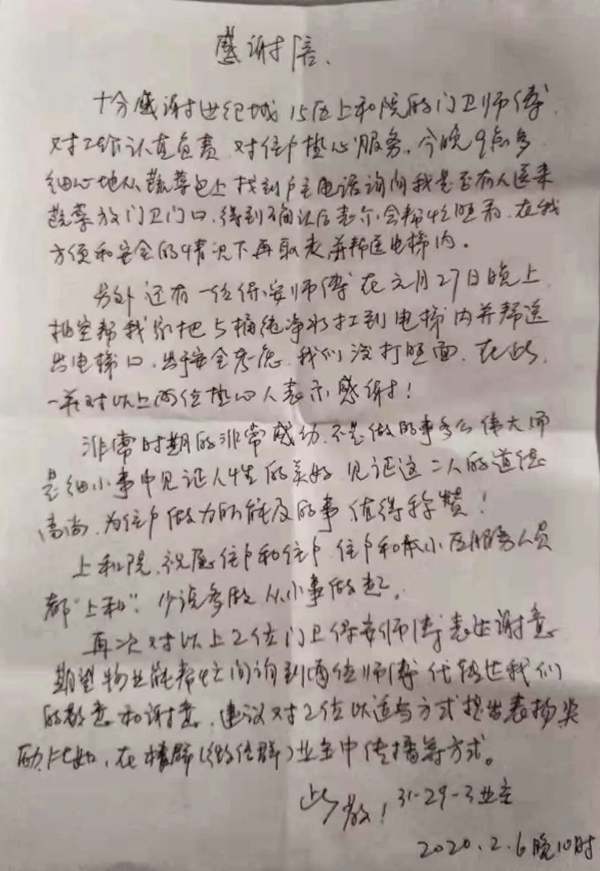 感谢信.
十分感谢世纪城15区上和院的门卫师傅
对工作认真负责 对住户热心服务。今晚9点多
细心地从蔬菜包上找到户主电话询问我是否有人送来
蔬菜放门卫门口,得到确认后表示会帮忙照看,在我
方便和安全的情况下再取走并帮送电梯内。
另外还有一位保安师傅在元月27日晚上
抽空帮我们把5桶纯净水扛到电梯内并帮送
出电梯口,出于安全考虑,我们没打照面,在此
一并对以上两位热心人表示感谢!
非常时期的非常感动,不是做的事多么伟大而
是细小事中见证人性的美好 见证这二人的道德
高尚,为住户做力所能及的事值得称赞!
上和院,祝愿住户和住户,住户和本小区服务人员
都"上和",少说多做,从小事做起。
再次对以上2位门卫保安师傅表达谢意
期望物业能帮忙问询到两位师傅代转达我们
的敬意和谢意,建议对2位以适当方式提出表扬奖
励,比如,在楼群(微信群)业主中传播等方式。
此致! 31-29-3业主
2020.2.6晚10时